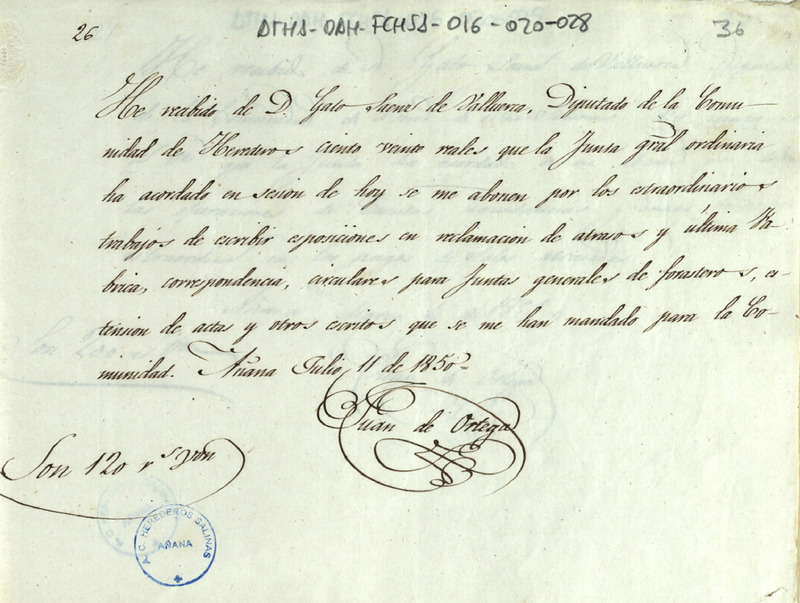 26
ATHA-DAH-FCHSA-016-020-028
36
He recibido de D. Galo Saenz de Valluerca, Diputado de la Comu-
nidad de Herederos ciento veinte reales que la Junta gral ordinaria
ha acordado en sesion de hoy se me abonen por los extraordinarios
trabajos de escribir esposiciones en reclamacion de atrasos y última Fa-
brica, correspondencia, circulares para Juntas generales de forasteros, es-
tension de actas y otros escritos que se me han mandado para la Co-
munidad. Añana Julio 11 de 1850
Juan de Ortega
Son 120 rs von
A.C. HEREDEROS SALINAS
AÑANA